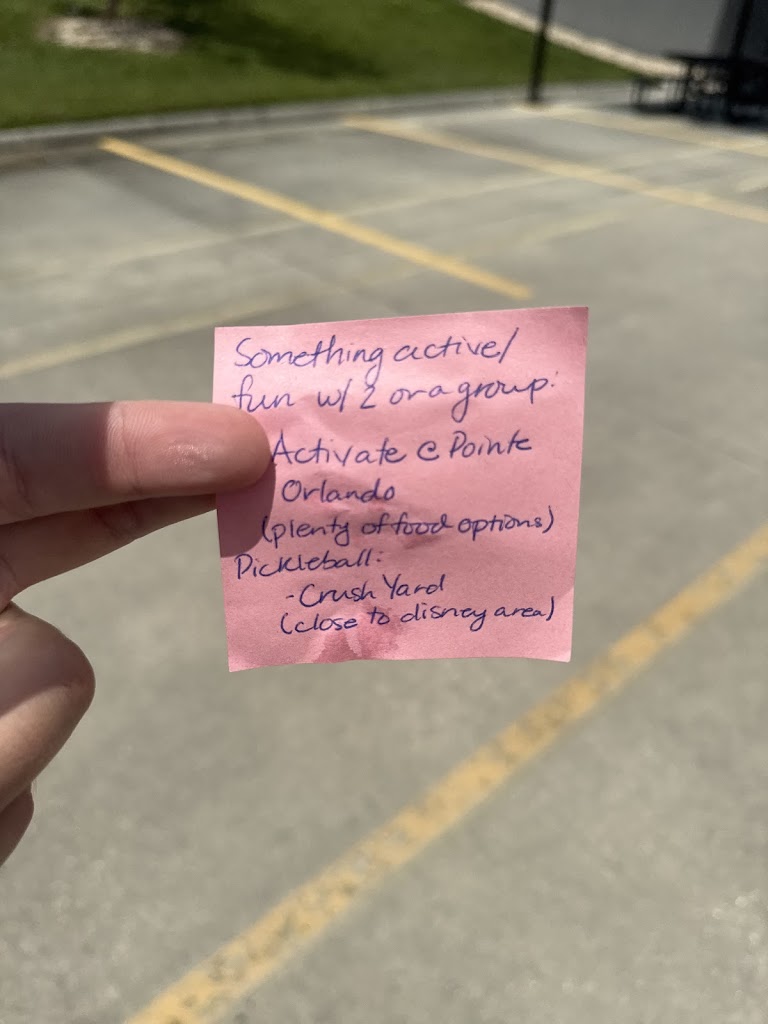 Something active/
fun w/ 2 or a group:
Activate @ Pointe
Orlando
(plenty of food options)
Pickleball:
- Crush Yard
(close to disney area)